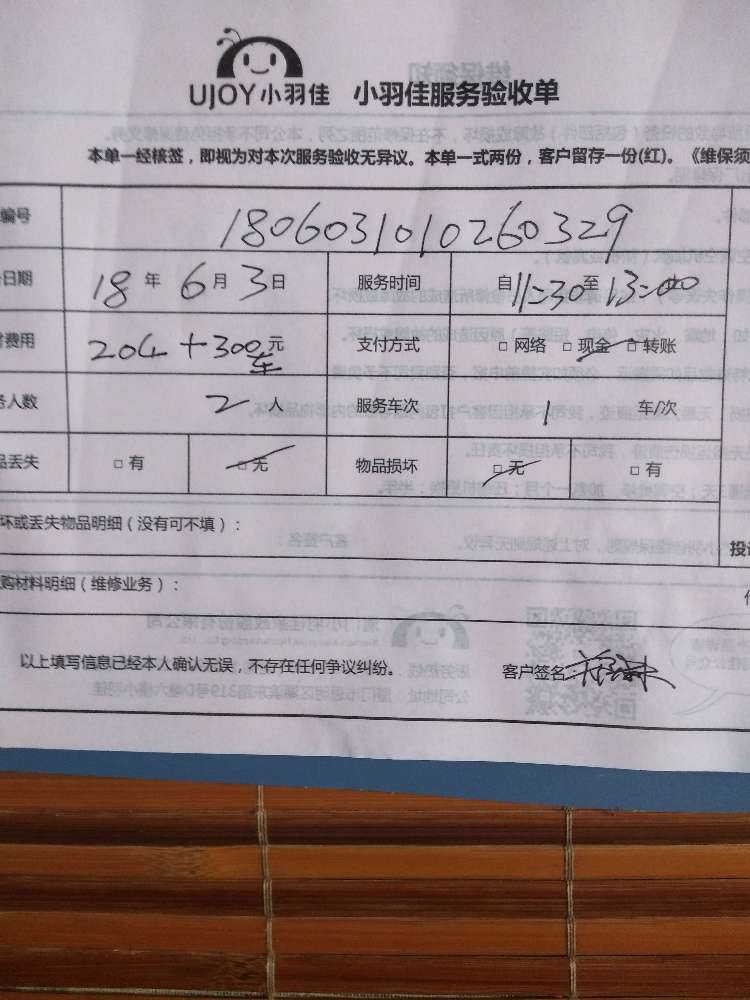 UJOY小羽佳 小羽佳服务验收单
本单一经核签，即视为对本次服务验收无异议。本单一式两份，客户留存一份(红)。《维保须
编号 1806031010260329
日期 18 年 6 月 3 日 服务时间 自 11:30 至 13:00
费用 204 + 300 元 支付方式 □ 网络 □ 现金 □ 转账
车
人数 2 人 服务车次 1 车/次
品丢失 □ 有 □ 无 物品损坏 □ 无 □ 有
坏或丢失物品明细（没有可不填）：
投
购材料明细（维修业务）：
以上填写信息已经本人确认无误，不存在任何争议纠纷。 客户签名：